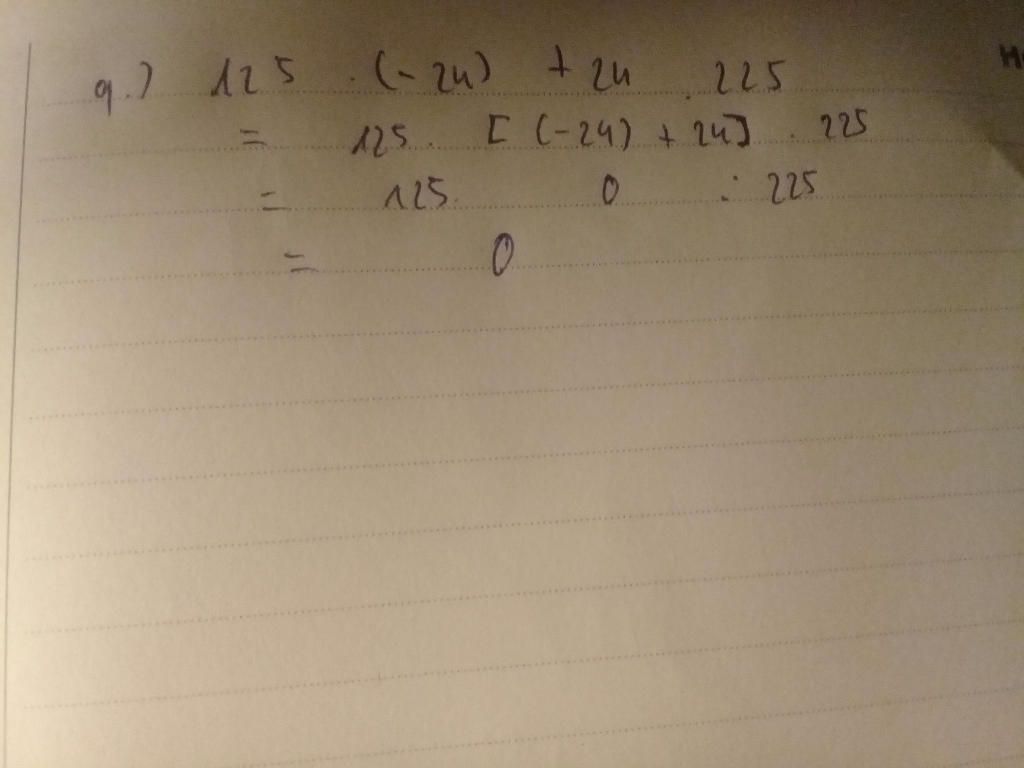 q.) 125 . (-24) + 24 . 225
= 125 . [ (-24) + 24] . 225
= 125 . 0 : 225
= 0